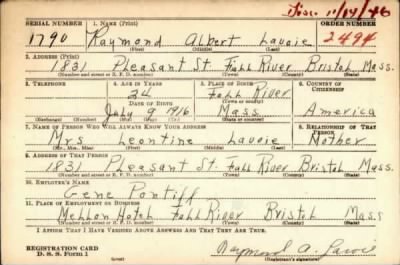 Dis. 11/14/46
SERIAL NUMBER 1. NAME (Print) ORDER NUMBER
1790 Raymond Albert Lavoie 2494
(First) (Middle) (Last)
2. ADDRESS (Print)
1831 Pleasant St. Fall River Bristol Mass.
(Number and street or R. F. D. number) (Town) (County) (State)
3. TELEPHONE 4. AGE IN YEARS 5. PLACE OF BIRTH 6. COUNTRY OF CITIZENSHIP
24 Fall River
DATE OF BIRTH (Town or county)
July 9 1916 Mass. America
(Exchange) (Number) (Mo.) (Day) (Yr.) (State or country)
7. NAME OF PERSON WHO WILL ALWAYS KNOW YOUR ADDRESS 8. RELATIONSHIP OF THAT PERSON
Mrs Leontine Lavoie Mother
(Mr., Mrs., Miss) (First) (Middle) (Last)
9. ADDRESS OF THAT PERSON
1831 Pleasant St. Fall River Bristol Mass.
(Number and street or R. F. D. number) (Town) (County) (State)
10. EMPLOYER'S NAME
Gene Pontiff
11. PLACE OF EMPLOYMENT OR BUSINESS
Mellon Hotel Fall River Bristol Mass
(Number and street or R. F. D. number) (Town) (County) (State)
I AFFIRM THAT I HAVE VERIFIED ABOVE ANSWERS AND THAT THEY ARE TRUE.
REGISTRATION CARD
D. S. S. Form 1 (over) Raymond A. Lavoie
(Registrant's signature)